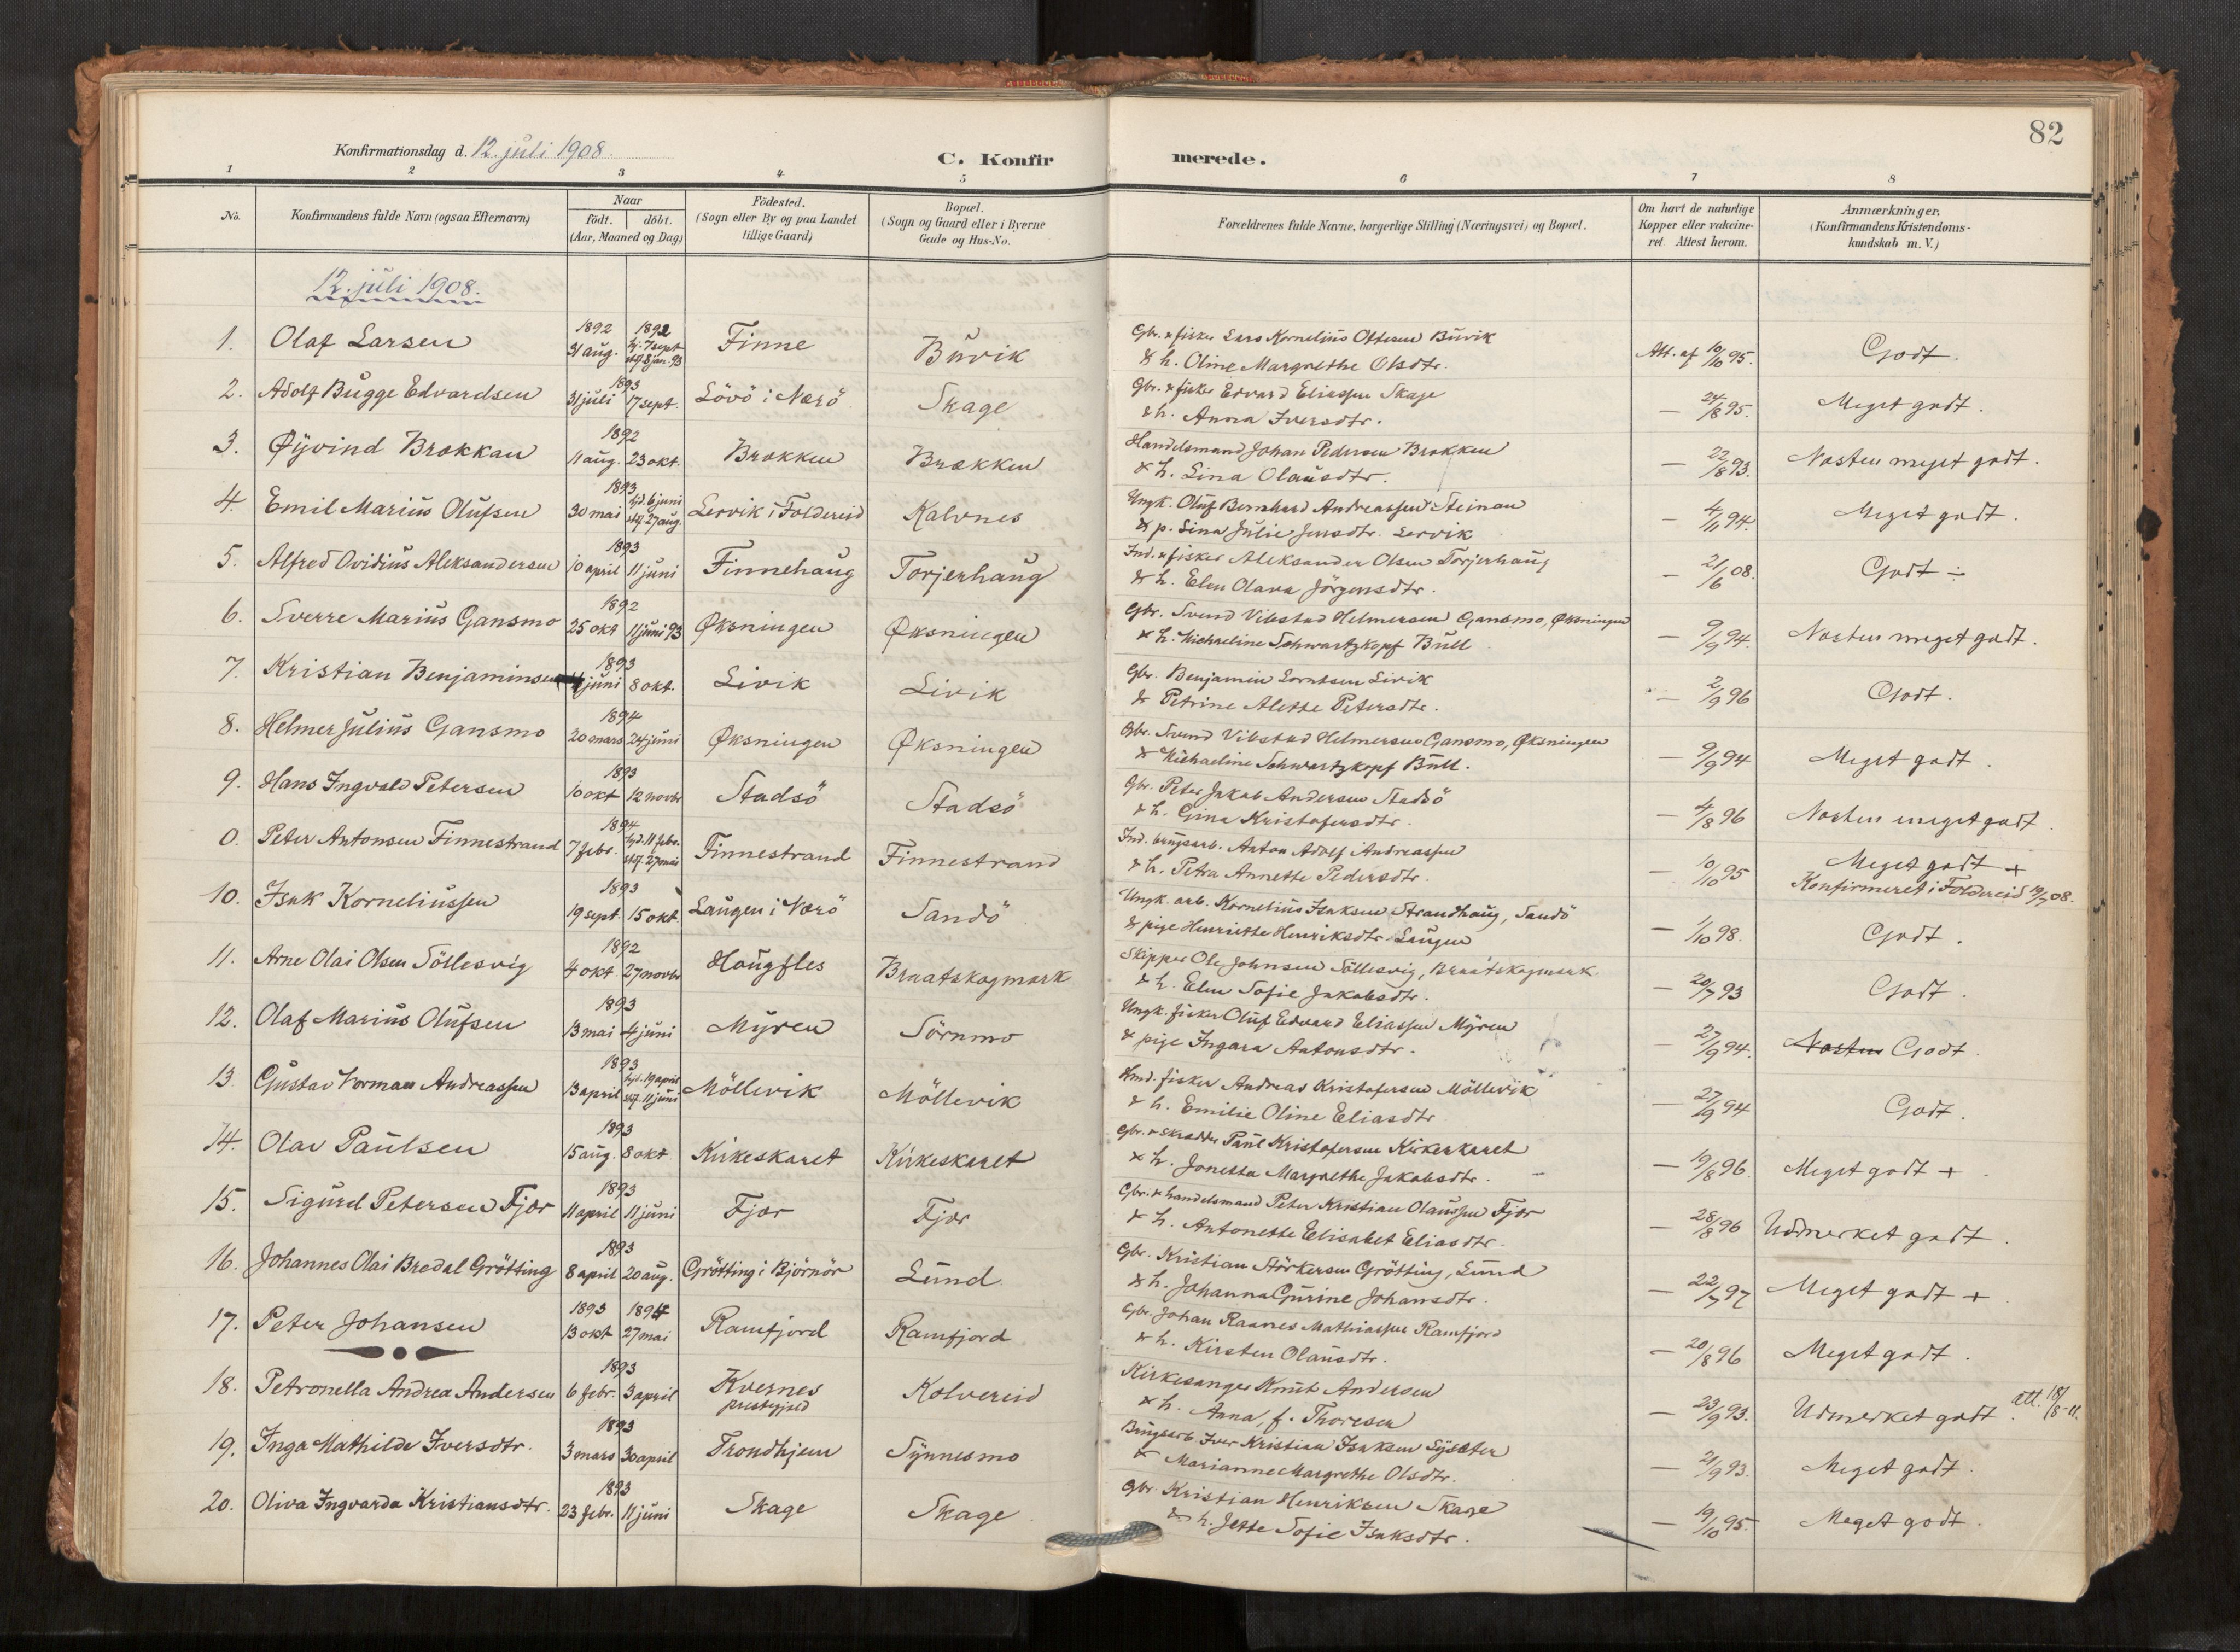 82
Konfirmationsdag d. 12. juli 1908.
C. Konfirmerede.
1 2 3 4 5 6 7 8
No. Konfirmandens fulde Navn (ogsaa Efternavn) Naar født. døbt. (Aar, Maaned og Dag) Fødested. (Sogn eller By og paa Landet tillige Gaard) Bopæl. (Sogn og Gaard eller i Byerne Gade og Hus-No. Forældrenes fulde Navne, borgerlige Stilling (Næringsvei) og Bopæl. Om havt de naturlige Kopper eller vakcineret. Attest herom. Anmærkninger. (Konfirmandens Kristendomskundskab m. V.)
12. juli 1908.
1. Olaf Larsen 1892 31 aug. 1892 hj. 7 sept stf. 8 jan. 93 Finne Buvik Gbr. & fisker Lars Kornelius Ottesen Buvik
& h. Oline Margrethe Olsdtr. Att. af 10/10 95. Godt.
2. Adolf Bugge Edvardsen 1893 31 juli 17 sept. Lövö i Nærö Skage Gbr. & fisker Edvard Eliassen Skage
& h. Anna Iversdtr. — 24/8 95. Meget godt.
3. Øyvind Brækkan 1892 11 aug. 23 okt. Brækken Brækken Handelsmand Johan Pedersen Brækken
& h. Lina Olausdtr. — 22/8 93. Næsten meget godt.
4. Emil Marius Olufsen 1893 30 mai hjd. 6 juni stf. 27 aug. Lervik i Foldereid Kalvnes Ungk. Oluf Bernhard Andreassen Steinan
& p. Lina Julie Jensdtr. Lervik — 4/11 94. Meget godt.
5. Alfred Ovidius Aleksandersen 1893 10 april 11 juni Finnehaug Torjerhaug Ind. & fisker Aleksander Olsen Torjerhaug
& h. Elen Olava Jörgensdtr. — 21/6 08. Godt ÷
6. Sverre Marius Gansmo 1892 25 okt 11 juni 93 Øksningen Øksningen Gbr. Svend Vibstad Helmersen Gansmo, Øksningen
& h. Michaeline Schwartzkopf Bull — 9/9 94. Næsten meget godt.
7. Kristian Benjaminsen 1893 4 juni 8 okt. Livik Livik Gbr. Benjamin Lorntsen Livik
& Petrine Alette Petersdtr. — 2/9 96 Godt.
8. Helmer Julius Gansmo 1894 20 mars 24 juni Øksningen Øksningen Gbr. Svend Vibstad Helmersen Gansmo, Øksningen
& Michaeline Schwartzkopf Bull. — 9/9 94 Meget godt.
9. Hans Ingvald Petersen 1893 10 okt 12 novbr Stadsö Stadsö Gbr. Peter Jakob Andersen Stadsö
& h. Gina Kristofersdtr. — 4/8 96 Næsten meget godt.
0. Peter Antonsen Finnestrand 1894 7 febr. hjd. 11 febr. stf. 27 mai Finnestrand Finnestrand Ind. brugsarb. Anton Adolf Andreassen
& h. Petra Annette Pedersdtr. — 10/10 95 Meget godt +
Konfirmeret i Foldereid 19/7 08.
10. Isak Korneliussen 1893 19 sept. 15 okt Laugen i Nærö Sandö Ungk. arb. Kornelius Isaksen Strandhaug, Sandö
& pige Henriette Henriksdtr. Laugen — 1/10 98. Godt.
11. Arne Olai Olsen Söllesvig 1892 4 okt. 27 novbr Haugfles Braatskogmark Skipper Ole Johnsen Söllesvig, Braatskogmark
& h. Elen Sofie Jakobsdtr. — 20/7 93 Godt.
12. Olaf Marius Olufsen 1893 13 mai 4 juni Myren Sörnmo Ungk. fisker Oluf Edvard Eliassen Myren
& pige Ingara Antonsdtr. — 27/9 94. Næsten Godt.
13. Gustav Norman Andreassen 1893 13 april hjd. 19 april stf. 11 juni Möllevik Möllevik Hmd. fisker Andreas Kristofersen Möllevik
& h. Emilie Oline Eliasdtr. — 27/9 94 Godt.
14. Olav Paulsen 1893 15 aug. 8 okt Kirkeskaret Kirkeskaret Gbr. & skrædder Paul Kristofersen Kirkeskaret
& h. Jonetta Margrethe Jakobsdtr. — 19/8 96. Meget godt +
15. Sigurd Petersen Fjær 1893 11 april 11 juni Fjær Fjær Gbr. & handelsmand Peter Kristian Olaussen Fjær
& h. Antonette Elisabet Eliasdtr. — 28/8 96 Udmerket godt.
16. Johannes Olai Bredal Grötting 1893 8 april 20 aug. Grötting i Björnör Lund Gbr. Kristian Störkersen Grötting, Lund
& h. Johanna Gurine Johansdtr. — 22/7 97 Meget godt +
17. Peter Johansen 1893 13 okt 1894 27 mai Ramfjord Ramfjord Gbr. Johan Raanes Mathiassen Ramfjord
& h. Kirsten Olausdtr. — 20/8 96 Meget godt.
18. Petronella Andrea Andersen 1893 6 febr. 3 april Kvernes prestegjeld Kolvereid Kirkesanger Knut Andersen
& h. Anna, f. Thoresen — 23/9 93. Udmerket godt. att. 18/8-11.
19. Inga Mathilde Iversdtr. 1893 3 mars 30 april Trondhjem Synnesmo Brugsarb Iver Kristian Isaksen Sysæter
& Marianne Margrethe Olsdtr. — 21/9 93. Meget godt.
20. Oliva Ingvarda Kristiansdtr. 1893 23 febr. 11 juni Skage Skage Gbr. Kristian Henriksen Skage
& h. Jette Sofie Isaksdtr. — 19/10 95. Meget godt.